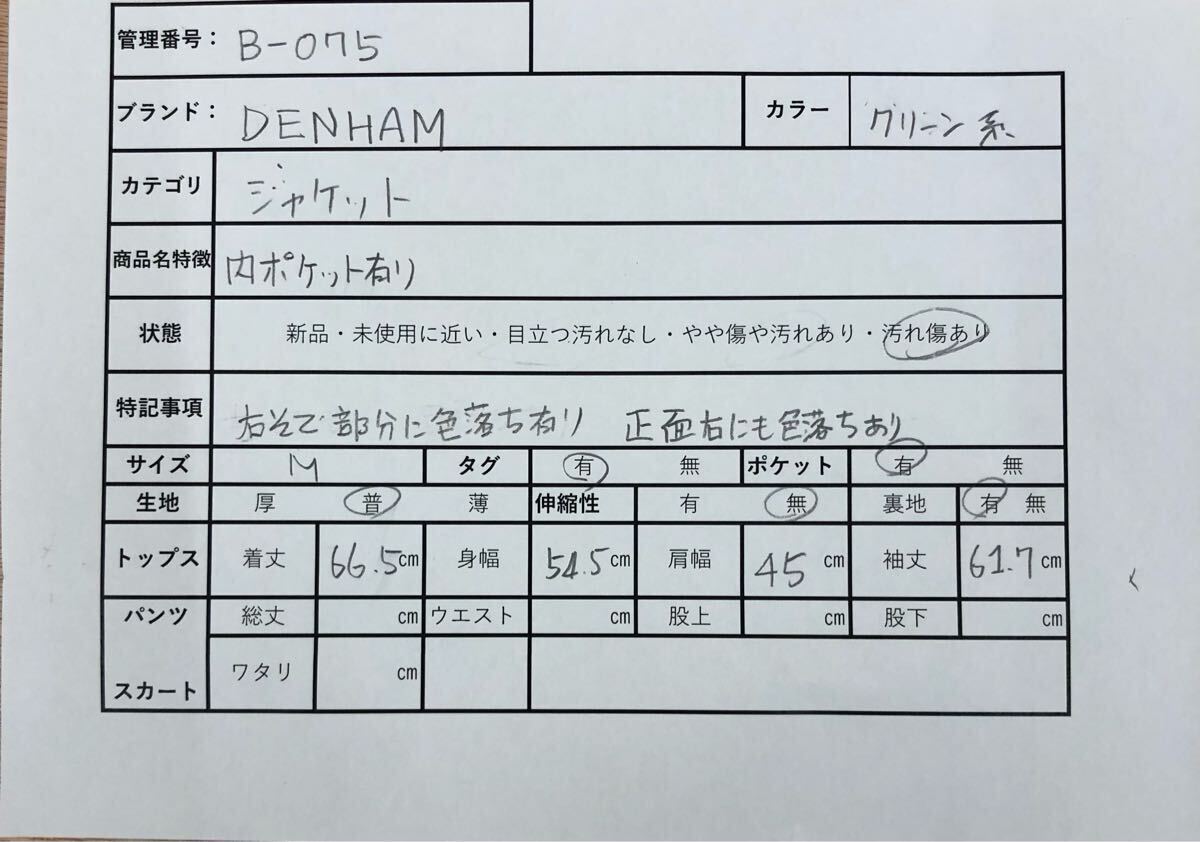 管理番号： B-075
ブランド： DENHAM カラー グリーン系
カテゴリ ジャケット
商品名特徴 内ポケット有り
状態 新品・未使用に近い・目立つ汚れなし・やや傷や汚れあり・汚れ傷あり
特記事項 右そで部分に色落ち有り 正面右にも色落ちあり
サイズ M タグ 有 無 ポケット 有 無
生地 厚 普 薄 伸縮性 有 無 裏地 有 無
トップス 着丈 66.5cm 身幅 54.5cm 肩幅 45cm 袖丈 61.7cm
パンツ 総丈 cm ウエスト cm 股上 cm 股下 cm
スカート ワタリ cm